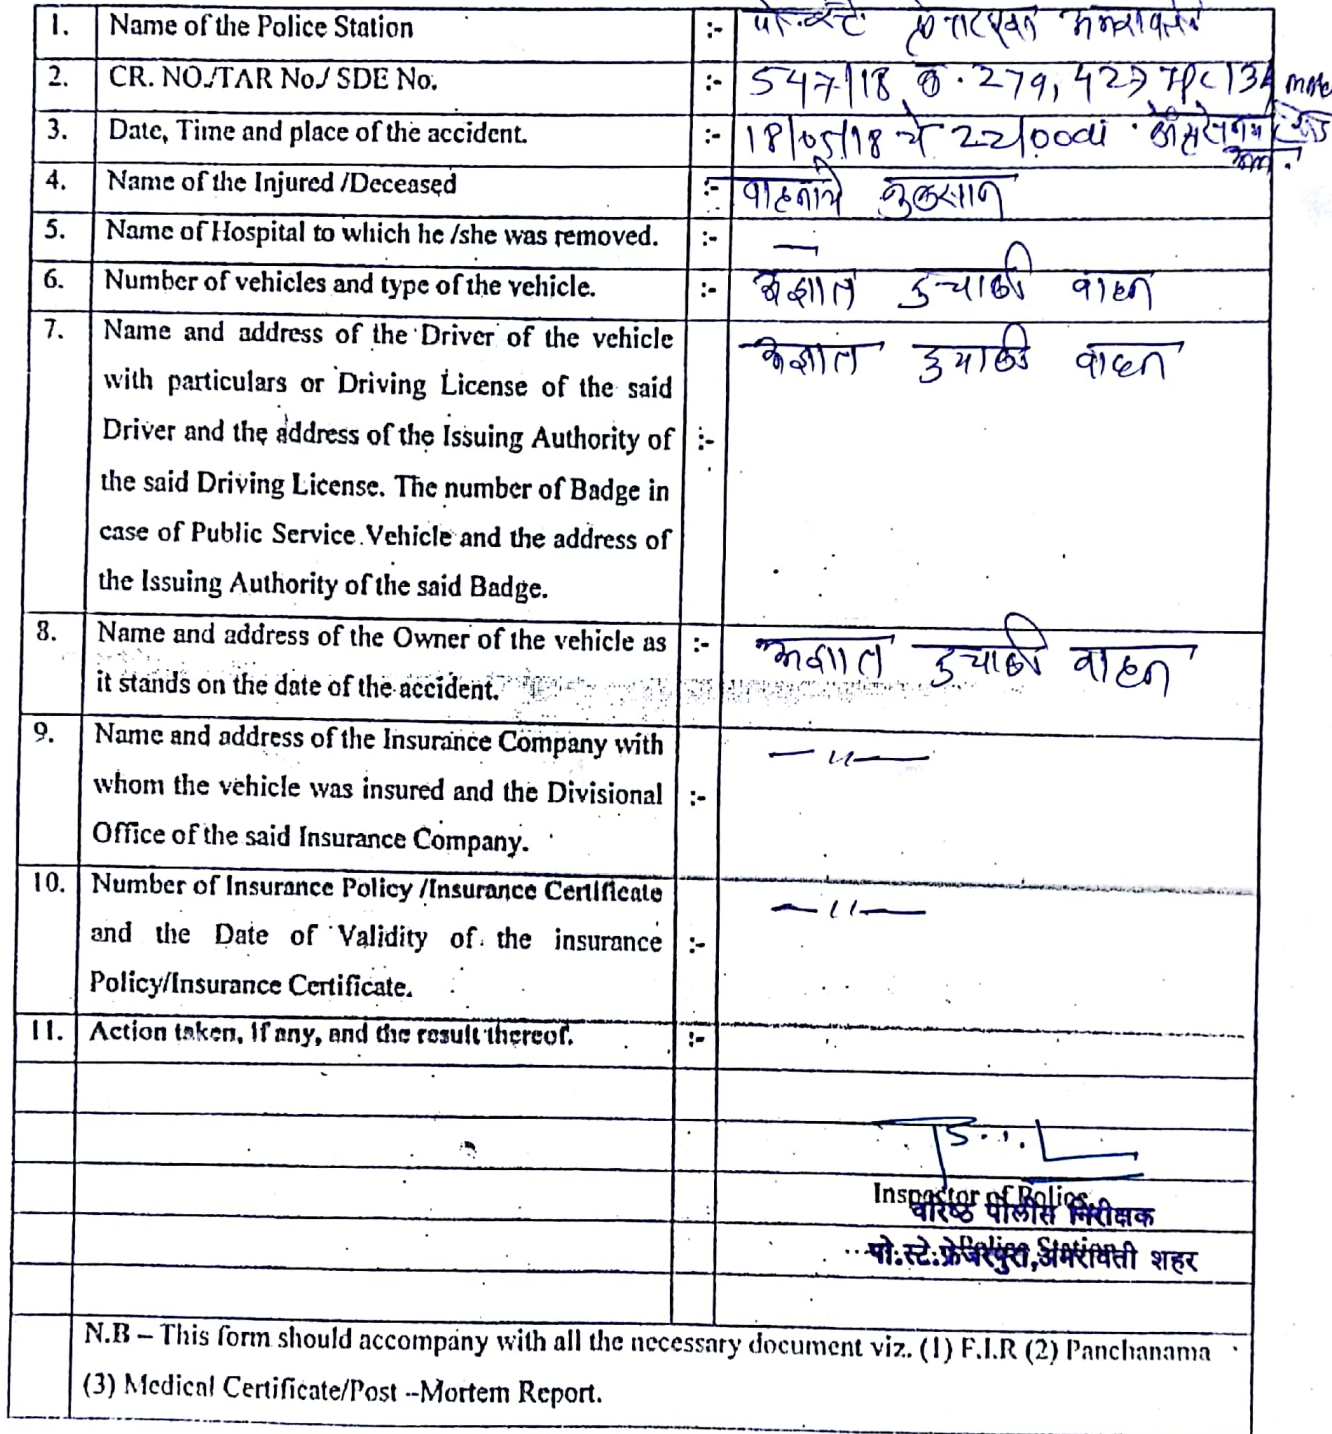 1. Name of the Police Station :- पो.स्टे. अमरावती
2. CR. NO./TAR No./ SDE No. :- 547/18 279, 427 IPC 134
3. Date, Time and place of the accident. :- 18/05/18 चे 22/00
4. Name of the Injured /Deceased :- वाहनाचे नुकसान
5. Name of Hospital to which he /she was removed. :- —
6. Number of vehicles and type of the vehicle. :- अज्ञात दुचाकी वाहन
7. Name and address of the Driver of the vehicle अज्ञात दुचाकी वाहन
with particulars or Driving License of the said
Driver and the address of the Issuing Authority of :-
the said Driving License. The number of Badge in
case of Public Service Vehicle and the address of
the Issuing Authority of the said Badge.
8. Name and address of the Owner of the vehicle as :- अज्ञात दुचाकी वाहन
it stands on the date of the accident.
9. Name and address of the Insurance Company with —〃—
whom the vehicle was insured and the Divisional :-
Office of the said Insurance Company.
10. Number of Insurance Policy /Insurance Certificate —〃—
and the Date of Validity of the insurance :-
Policy/Insurance Certificate.
11. Action taken, if any, and the result thereof. :-
Inspector of Police
वरिष्ठ पोलीस निरीक्षक
Police Station
पो.स्टे.फ्रेजरपुरा,अमरावती शहर
N.B – This form should accompany with all the necessary document viz. (1) F.I.R (2) Panchanama
(3) Medical Certificate/Post --Mortem Report.